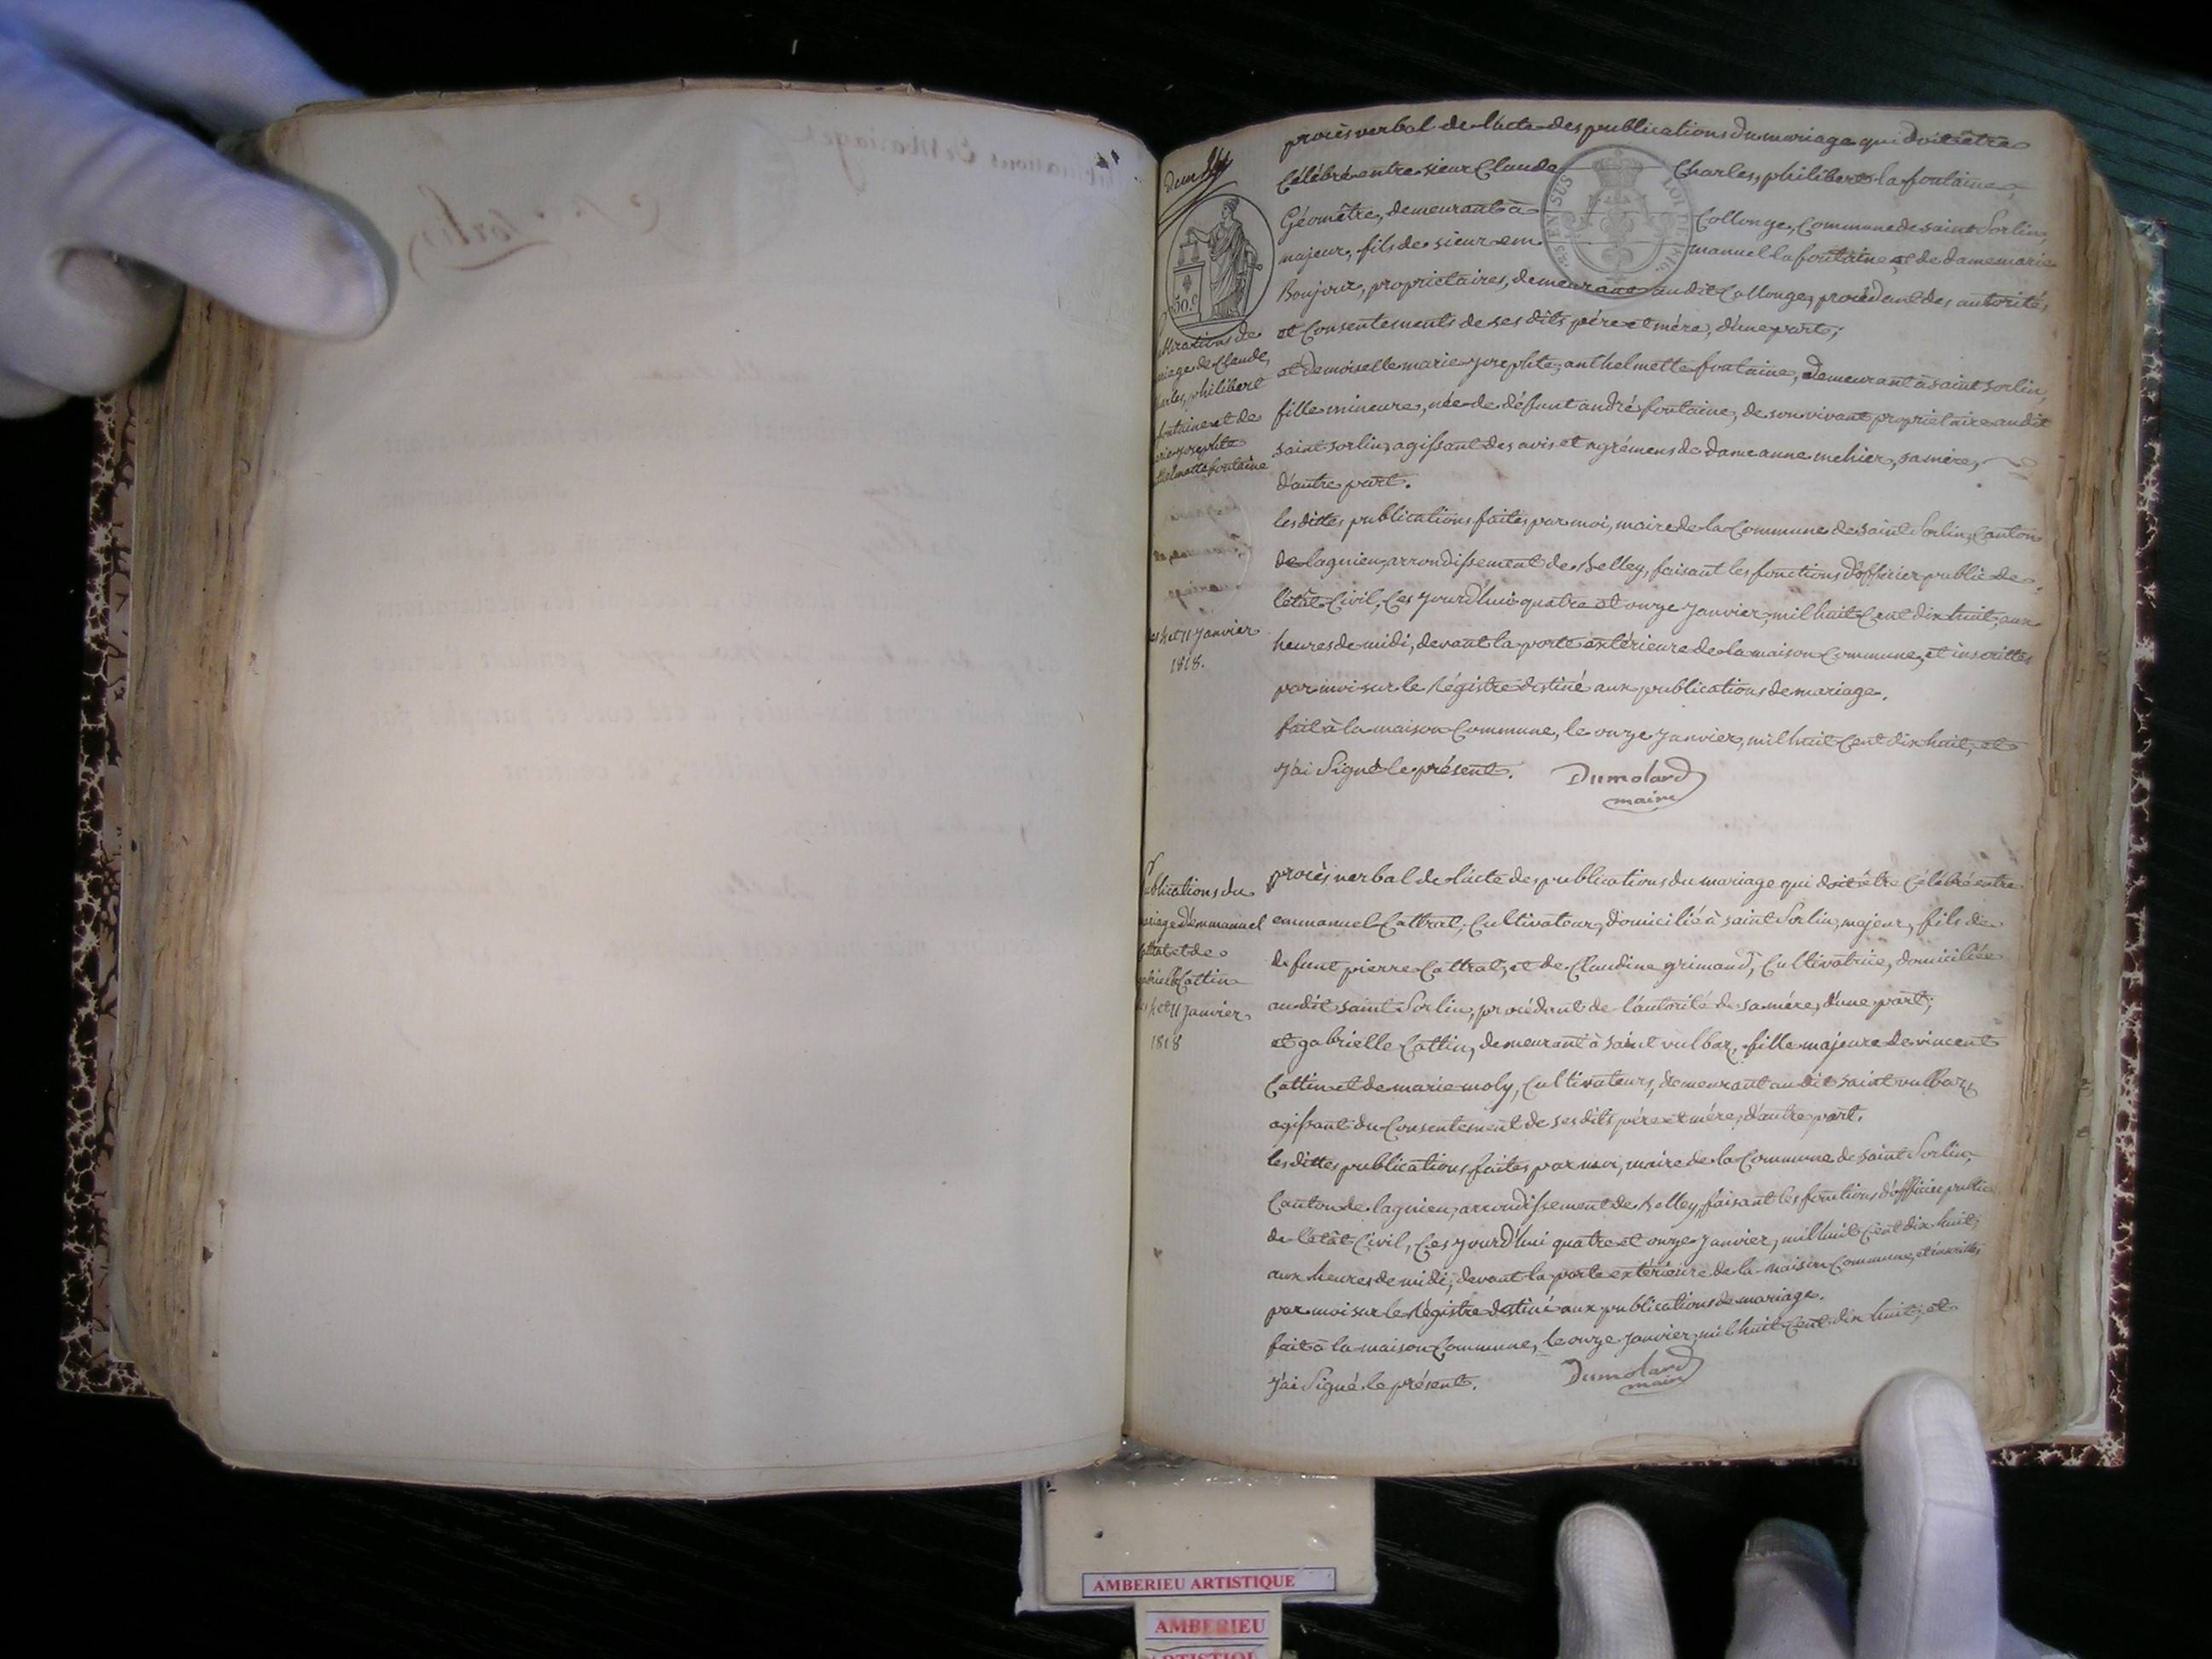 procès verbal de l'acte des publications du mariage qui doit être
Célébré entre sieur Claude Charles, philibert la fontaine,
Géomêtre, demeurant à Collonge, Commune de saint Sorlin,
majeur, fils de sieur emmanuel la fontaine, et de dame marie
Bonjour, proprietaires, demeurant au dit Collonge, procédant des autorités
et Consentements de ses dits père et mère, d'une part;
et demoiselle marie josephte, anthelmette fontaine, demeurant à saint sorlin,
fille mineure, née de défunt andré fontaine, de son vivant proprietaire au dit
saint sorlin, agissant des avis et agrémens de dame anne mehier, sa mère,
d'autre part.
les dittes publications faites par moi, maire de la Commune de saint Sorlin, Canton
de lagnieu, arrondissement de Belley, faisant les fonctions d'officier public de
l'état Civil, Ces jourd'hui quatre et onze janvier, mil huit Cent dix huit, aux
heures de midi, devant la porte extérieure de la maison Commune, et inscrittes
par moi sur le Régistre destiné aux publications de mariage.
fait à la maison Commune, le onze janvier, mil huit Cent dix huit, et
j'ai Signé le présent. Dumolard
maire
50.C
SUS
LOI
blications de
riage de Claude,
harles, philibert
fontaine et de
rie josephte
thelmette fontaine
es 4 et 11 janvier
1818.
Publications du
riage d'emmanuel
Cattrat et de
gabrielle Cattin
es 4 et 11 janvier
1818
procès verbal de l'acte des publications du mariage qui doit être Célébré entre
emmanuel Cattrat, Cultivateur, domicilié à saint Sorlin, majeur, fils de
defunt pierre Cattrat, et de Claudine grimaud, Cultivatrice, domiciliée
au dit saint Sorlin, procédant de l'autorité de sa mère, d'une part;
et gabrielle Cattin, demeurant à saint vulbaz, fille majeure de vincent
Cattin et de marie moly, Cultivateurs, demeurant au dit saint vulbaz,
agissant du Consentement de ses dits père et mère, d'autre part.
les dittes publications faites par moi, maire de la Commune de saint Sorlin,
Canton de lagnieu, arrondissement de Belley, faisant les fonctions d'officier public
de l'état Civil, Ces jourd'hui quatre et onze janvier, mil huit Cent dix huit,
aux heures de midi, devant la porte extérieure de la maison Commune, et inscrittes
par moi sur le Régistre destiné aux publications de mariage.
fait à la maison Commune, le onze janvier, mil huit Cent dix huit, et
j'ai Signé le présent. Dumolard
maire
AMBERIEU ARTISTIQUE
AMBERIEU
ARTISTIQUE